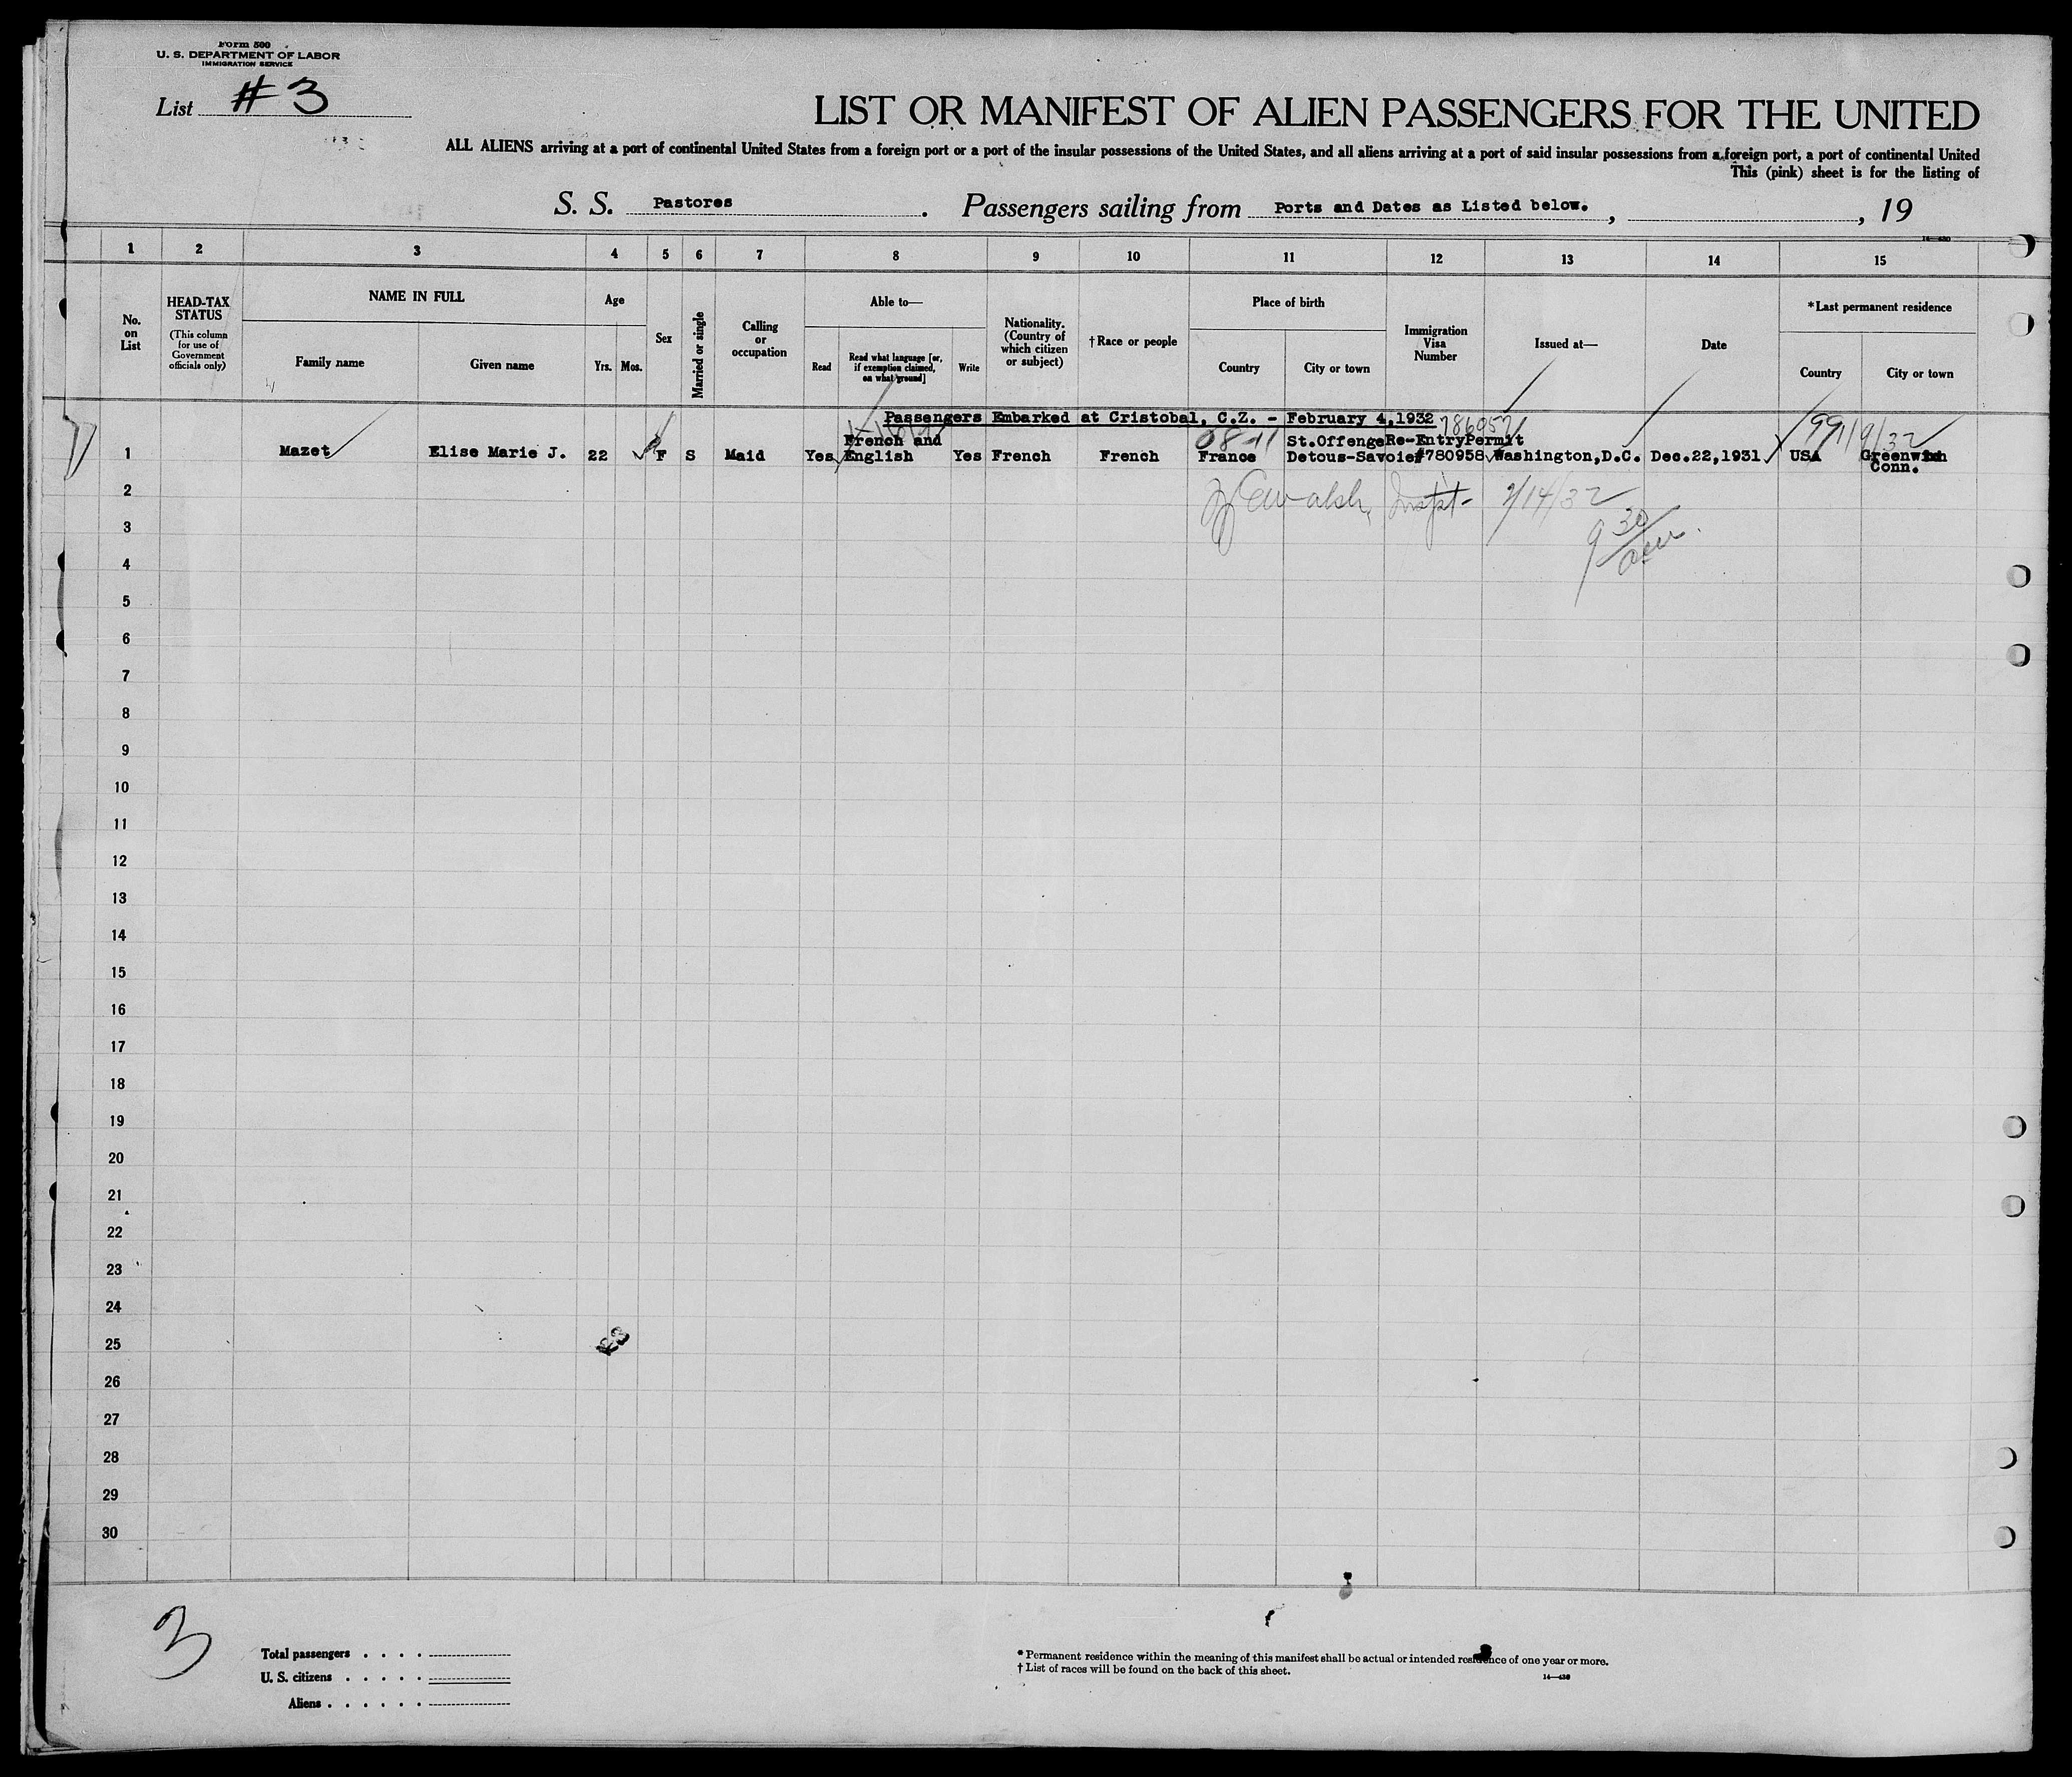 Form 500
U. S. DEPARTMENT OF LABOR
IMMIGRATION SERVICE
List #3
LIST OR MANIFEST OF ALIEN PASSENGERS FOR THE UNITED
ALL ALIENS arriving at a port of continental United States from a foreign port or a port of the insular possessions of the United States, and all aliens arriving at a port of said insular possessions from a foreign port, a port of continental United
This (pink) sheet is for the listing of
S. S. Pastores. Passengers sailing from Ports and Dates as Listed below. , , 19
1 2 3 4 5 6 7 8 9 10 11 12 13 14 15
No. on List
HEAD-TAX STATUS
(This column for use of Government officials only)
NAME IN FULL
Family name
Given name
Age
Yrs. Mos.
Sex
Married or single
Calling or occupation
Able to—
Read
Read what language [or, if exemption claimed, on what ground]
Write
Nationality. (Country of which citizen or subject)
†Race or people
Place of birth
Country
City or town
Immigration Visa Number
Issued at—
Date
*Last permanent residence
Country
City or town
Passengers Embarked at Cristobal, C.Z. - February 4,1932
786957
French and
St.Offenge Re-EntryPermit
1 Mazet Elise Marie J. 22 F S Maid Yes English Yes French French France Detous-Savoie #780958 Washington,D.C. Dec.22,1931 USA Greenwich
Conn.
2
Walsh, Inspt- 2/14/32
3
9 30/am.
4
5
6
7
8
9
10
11
12
13
14
15
16
17
18
19
20
21
22
23
24
25
26
27
28
29
30
3
Total passengers . . . .
U. S. citizens . . . . .
Aliens . . . . . .
* Permanent residence within the meaning of this manifest shall be actual or intended residence of one year or more.
† List of races will be found on the back of this sheet.